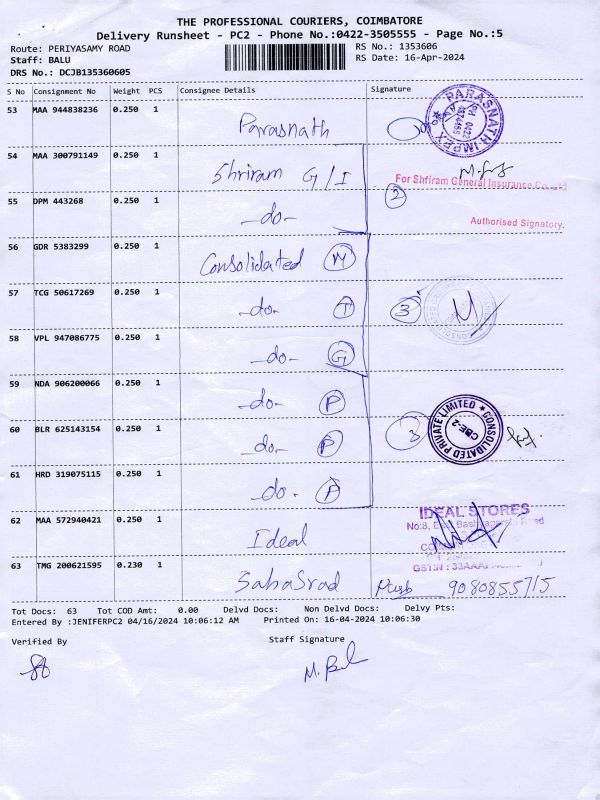 THE PROFESSIONAL COURIERS, COIMBATORE
Delivery Runsheet - PC2 - Phone No.:0422-3505555 - Page No.:5
Route: PERIYASAMY ROAD
Staff: BALU
DRS No.: DCJB135360605
RS No.: 1353606
RS Date: 16-Apr-2024
S No Consignment No Weight PCS Consignee Details Signature
53 MAA 944838236 0.250 1 Parasnath
PARASNATH IMPEX
54 MAA 300791149 0.250 1 Shriram G/I
For Shriram General Insurance Co. Ltd
2
55 DPM 443268 0.250 1 -do-
Authorised Signatory.
56 GDR 5383299 0.250 1 Consolidated M
57 TCG 50617269 0.250 1 -do- T 3
58 VPL 947086775 0.250 1 -do- G
59 NDA 906200066 0.250 1 -do- P
60 BLR 625143154 0.250 1 -do- P 3
CONSOLIDATED PRIVATE LIMITED
CBE-2
61 HRD 319075115 0.250 1 -do- P
62 MAA 572940421 0.250 1 Ideal
IDEAL STORES
No:8, Road
GSTIN : 33AAA
63 TMG 200621595 0.230 1 SahaSrad 9080855715
Tot Docs: 63 Tot COD Amt: 0.00 Delvd Docs: Non Delvd Docs: Delvy Pts:
Entered By :JENIFERPC2 04/16/2024 10:06:12 AM Printed On: 16-04-2024 10:06:30
Verified By Staff Signature